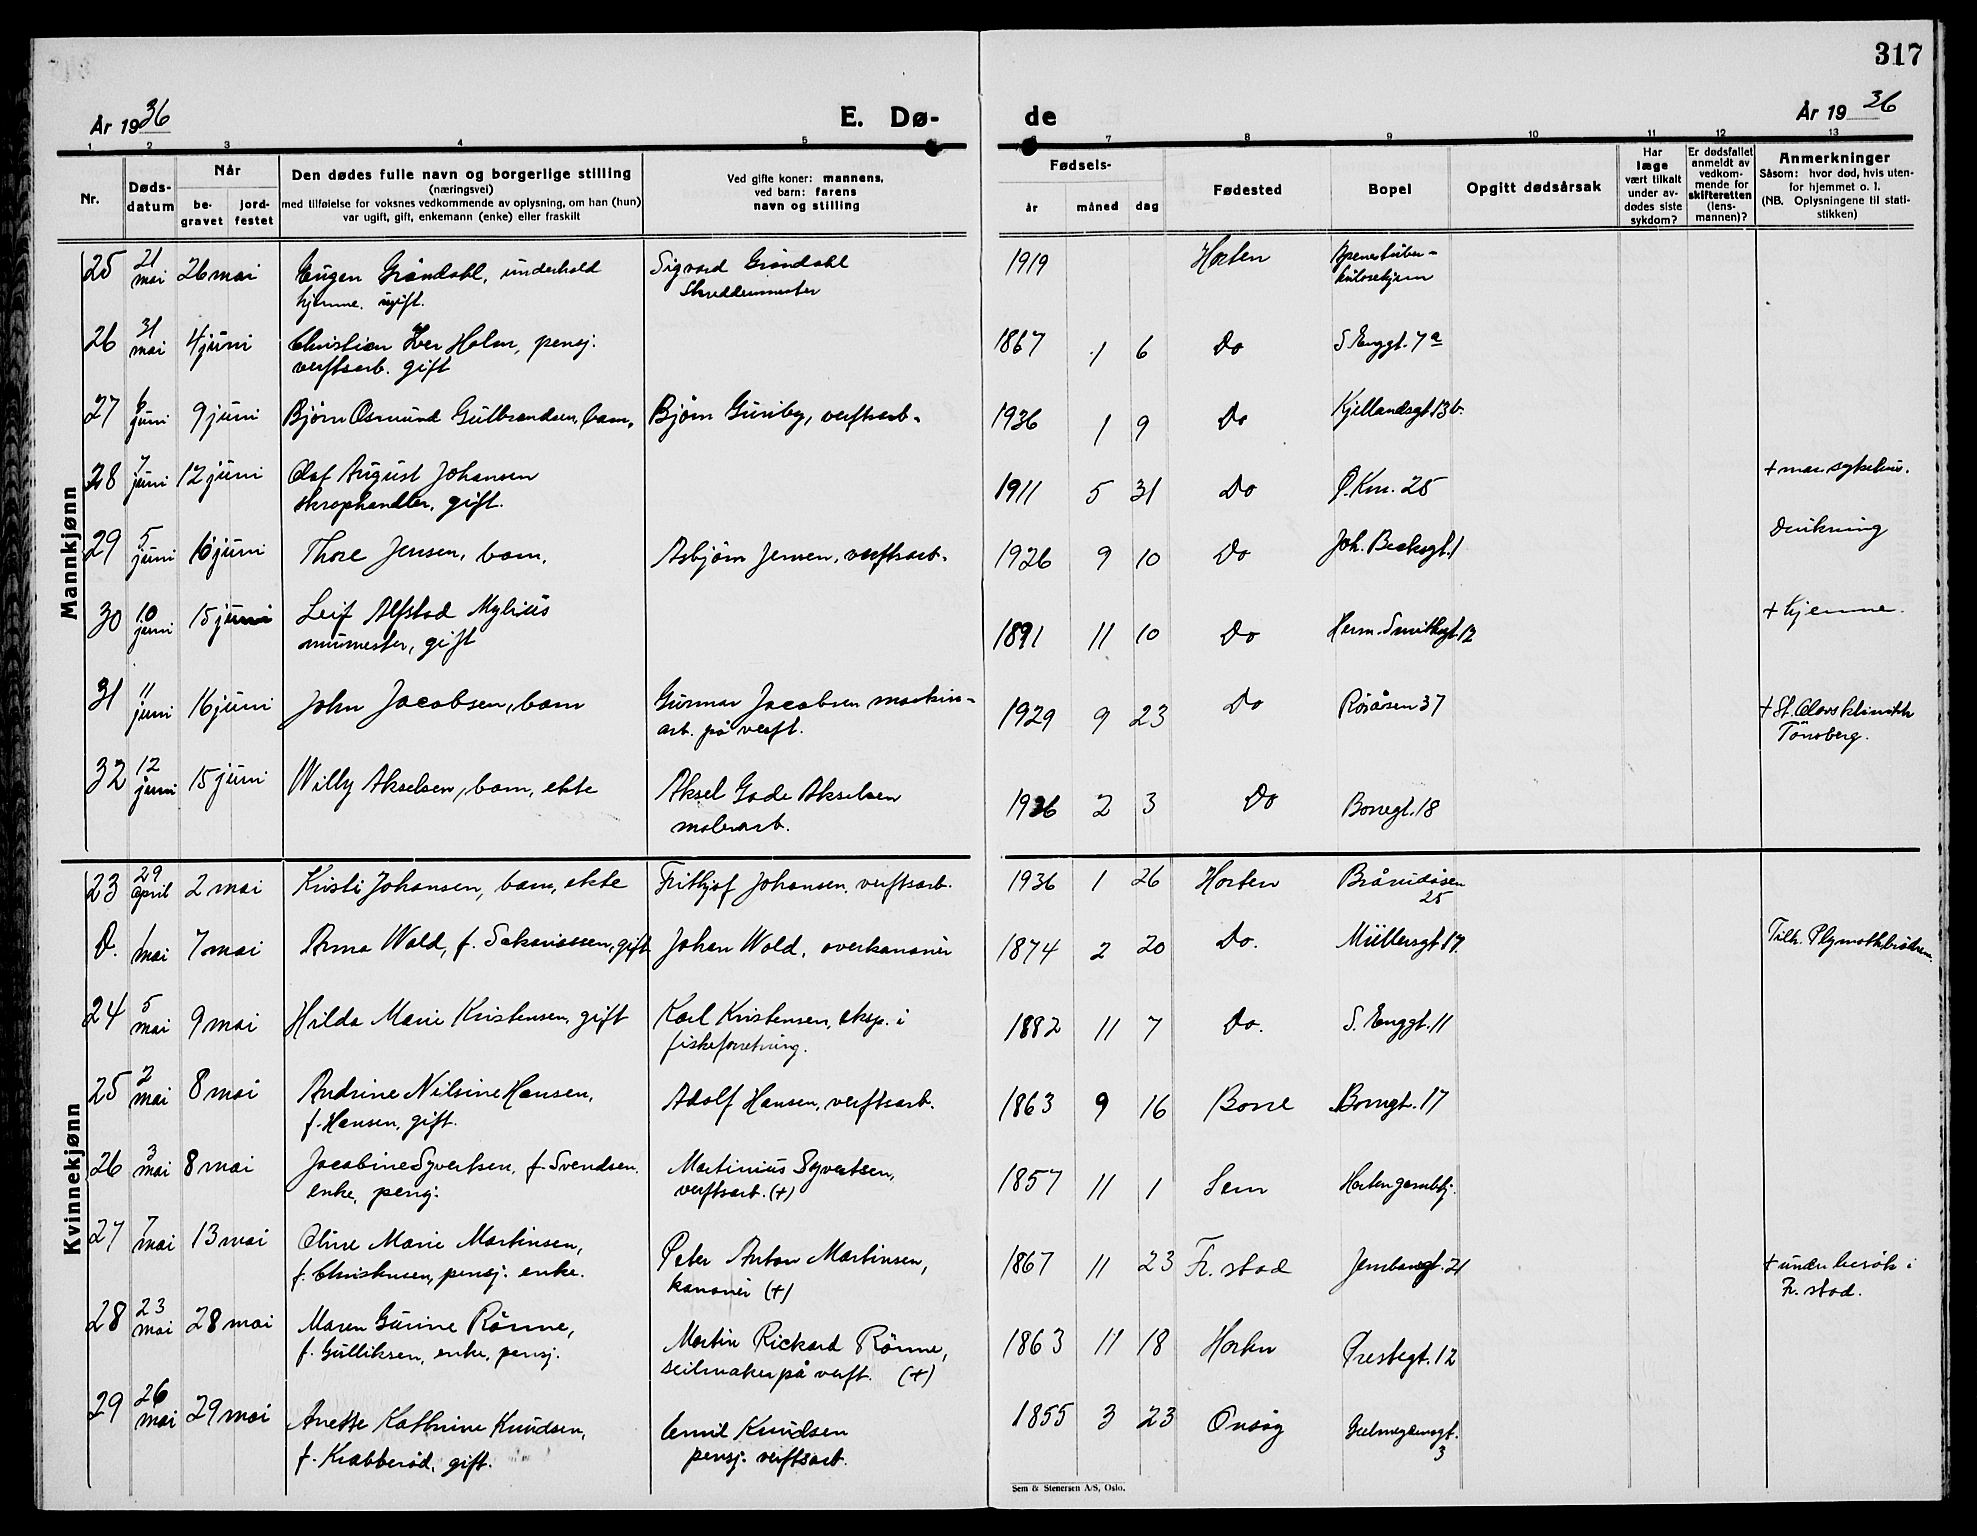 317
År 1936
E. Dø-
de
År 1936
1 2 3 4 5 6 7 8 9 10 11 12 13
Nr.
Døds-
datum
Når
be-
gravet
jord-
festet
Den dødes fulle navn og borgerlige stilling
(næringsvei)
med tilføielse for voksnes vedkommende av oplysning, om han (hun)
var ugift, gift, enkemann (enke) eller fraskilt
Ved gifte koner: mannens,
ved barn: farens
navn og stilling
Fødsels-
år måned dag
Fødested
Bopel
Opgitt dødsårsak
Har
læge
vært tilkalt
under av-
dødes siste
sykdom?
Er dødsfallet
anmeldt av
vedkom-
mende for
skifteretten
(lens-
mannen)?
Anmerkninger
Såsom: hvor død, hvis uten-
for hjemmet o. l.
(NB. Oplysningene til stati-
stikken)
Mannkjønn
25 21 mai 26 mai Eugen Gröndahl, underhold Sigvard Gröndahl 1919 Horten
hjemme. ugift. Skreddermester
26 31 mai 4 juni Christian Iver Holm, pensj. 1867 1 6 Do S. Enggt. 7a
verftsarb. gift
27 6 juni 9 juni Björn Osmund Gulbrandsen, barn, Björn Guriby, verftsarb. 1936 1 9 Do Kjellandsgt. 13b.
28 7 juni 12 juni Olaf August Johansen 1911 5 31 Do Ø. Km. 25 + mar. sykehus.
skraphandler, gift.
29 5 juni 16 juni Thore Jensen, barn, Asbjörn Jensen, verftsarb. 1926 9 10 Do Joh. Becksgt. 1 Drukning
30 10 juni 15 juni Leif Alfstad Mylius 1891 11 10 Do Herm. Smithsgt. 12 + hjemme.
murmester, gift
31 11 juni 16 juni John Jacobsen, barn Gunnar Jacobsen maskin- 1929 9 23 Do Röråsen 37 + St. Olavs klinikk
arb. på verft. Tönsberg.
32 12 juni 15 juni Willy Akselsen, barn, ekte Aksel Gade Akselsen 1936 2 3 Do Borregt. 18
malerarb.
Kvinnekjønn
23 29 april 2 mai Kristi Johansen, barn, ekte Frithjof Johansen, verftsarb. 1936 1 26 Horten Bråråsen
25
D. 1 mai 7 mai Anna Wold, f. Sakariassen, gift Johan Wold, overkanonér 1874 2 20 Do. Müllersgt. 17. Tilh. Plymothbrödrene.
24 5 mai 9 mai Hilda Marie Kristensen, gift Karl Kristensen, eksp. i 1882 11 7 Do. S. Enggt. 11
fiskeforretning.
25 2 mai 8 mai Andrine Nilsine Hansen, Adolf Hansen, verftsarb. 1863 9 16 Borre Borregt. 17
f. Hansen, gift.
26 3 mai 8 mai Jacobine Syvertsen, f. Svendsen. Martinius Syvertsen, 1857 11 1 Sem Horten gamlehj.
enke, pensj. verftsarb. (+)
27 7 mai 13 mai Oline Marie Martinsen, Peter Anton Martinsen, 1867 11 23 Fr. stad Jernbanegt. 21 + under besök i
f. Christensen, pensj. enke. kanonér (+) Fr. stad.
28 23 mai 28 mai Maren Gurine Rönne, Martin Rickard Rönne, 1863 11 18 Horten Prestegt. 12
f. Gulliksen, enke, pensj. seilmaker på verft. (+)
29 26 mai 29 mai Anette Kathrine Knudsen, Emil Knudsen 1855 3 23 Onsöy
f. Krabberöd, gift. pensj. verftsarb. 3
Sem & Stenersen A/S, Oslo.